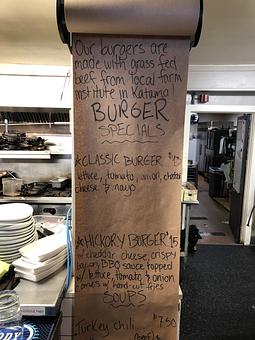 Our burgers are
made with grass fed
beef from local farm
institute in Katama!
BURGER
SPECIALS
*CLASSIC BURGER
lettuce, tomato, onion, cheddar
cheese & mayo
*HICKORY BURGER $15
w/ cheddar cheese, crispy
bacon, BBQ sauce topped
w/ lettuce, tomato & onion
comes w/ hand-cut fries
SOUPS
Turkey chili $7.50